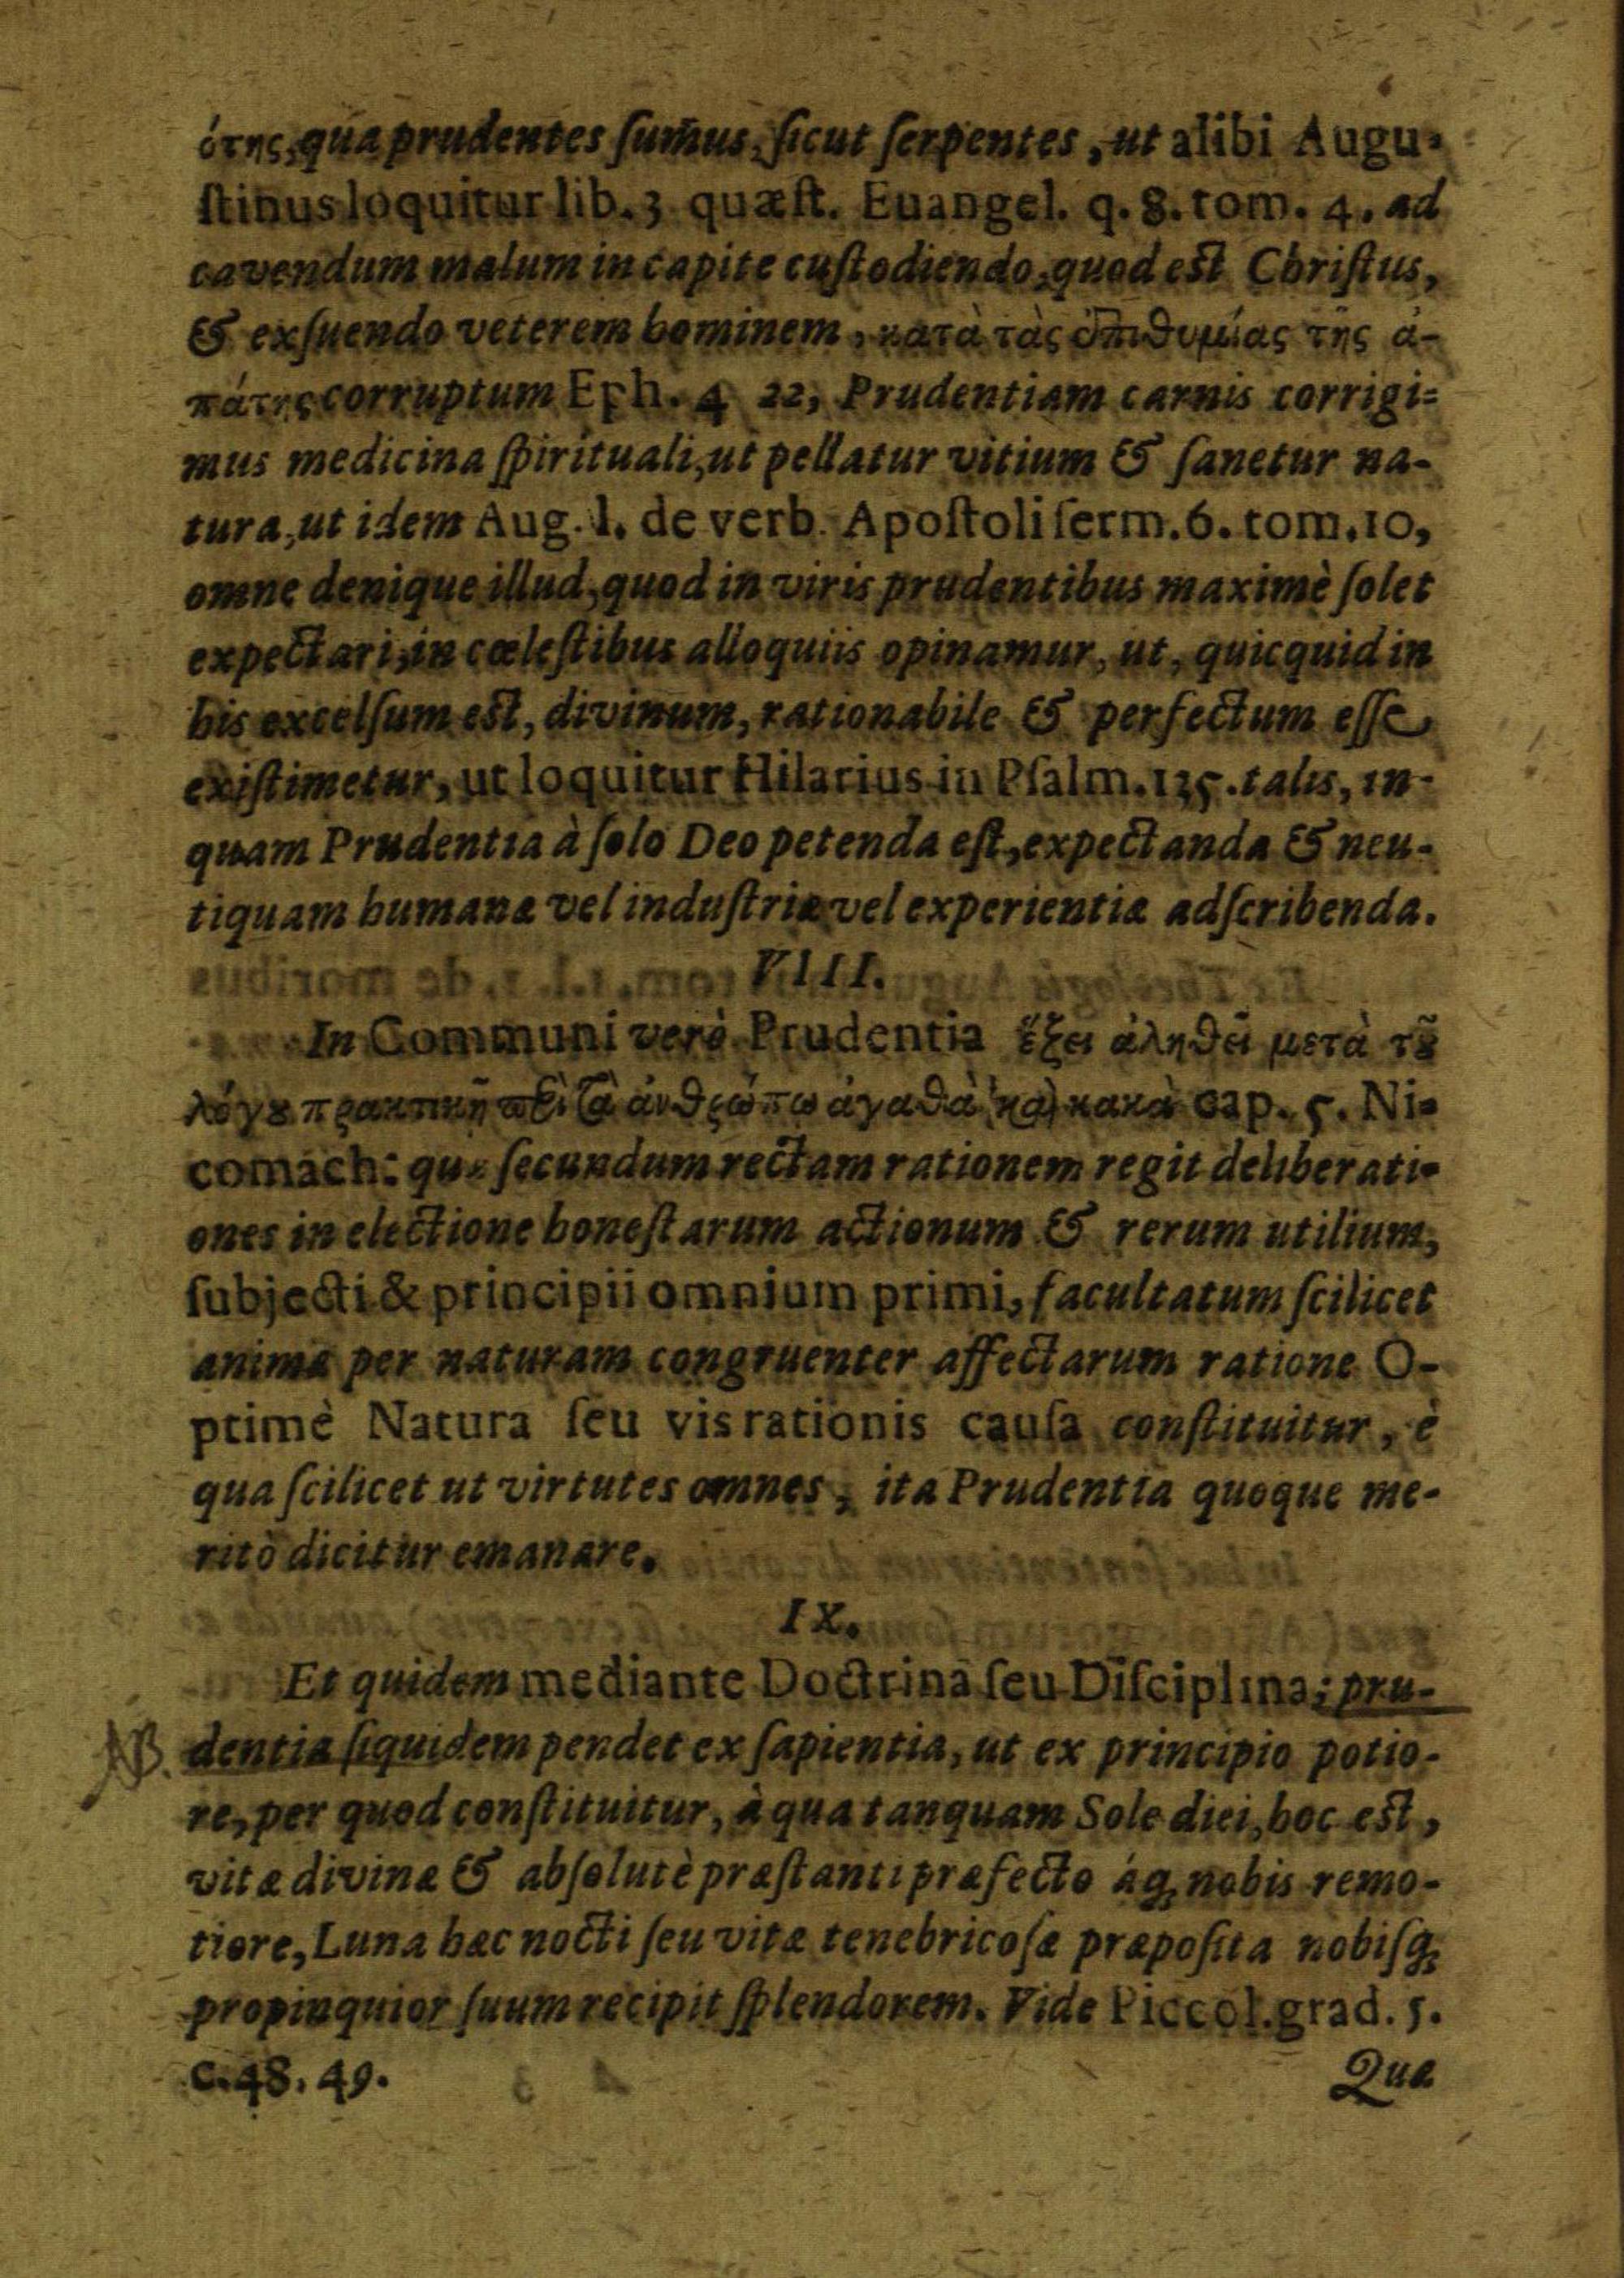 ότης, qua prudentes sum̃us, ſicut ſerpentes, ut alibi Augu-
ſtinus loquitur lib. 3 quæſt. Euangel. q. 8. tom. 4. ad
cavendum malum in capite cuſtodiendo, quod est Chriſtus,
& exſuendo veterem hominem, κατὰ τὰς ἐπιθυμίας τῆς ἀ-
πάτης corruptum Eph. 4 22, Prudentiam carnis corrigi-
mus medicina ſpirituali, ut pellatur vitium & ſanetur na-
tura, ut idem Aug. l. de verb. Apoſtoli ſerm. 6. tom. 10,
omne denique illud, quod in viris prudentibus maximè ſolet
expectari, in cœleſtibus alloquiis opinamur, ut, quicquid in
his excelſum est, divinum, rationabile & perfectum eſſe
exiſtimetur, ut loquitur Hilarius in Pſalm. 135. talis, in-
quam Prudentia à ſolo Deo petenda eſt, expectanda & neu-
tiquam humanæ vel induſtriæ vel experientiæ adſcribenda.
VIII.
In Communi verò Prudentia ἕξει ἀληθεῖ μετὰ τȣ͂
λόγȣ πρακτικῇ περὶ τὰ ἀνθρώπω ἀγαθὰ καὶ κακὰ cap. 5. Ni-
comach: quæ ſecundum rectam rationem regit deliberati-
ones in electione honeſtarum actionum & rerum utilium,
ſubjecti & principii omnium primi, facultatum ſcilicet
animæ per naturam congruenter affectarum ratione O-
ptimè Natura ſeu vis rationis cauſa conſtituitur, è
qua ſcilicet ut virtutes omnes, ita Prudentia quoque me-
ritò dicitur emanare.
IX.
Et quidem mediante Doctrina ſeu Diſciplina; pru-
NB. dentia ſiquidem pendet ex ſapientia, ut ex principio potio-
re, per quod conſtituitur, à qua tanquam Sole diei, hoc est,
vitæ divinæ & abſolutè præſtanti præfecto áq; nobis remo-
tiore, Luna hæc nocti ſeu vitæ tenebricoſæ præpoſita nobiſq;
propinquior ſuum recipit ſplendorem. Vide Piccol. grad. 5.
c. 48. 49.
Qua